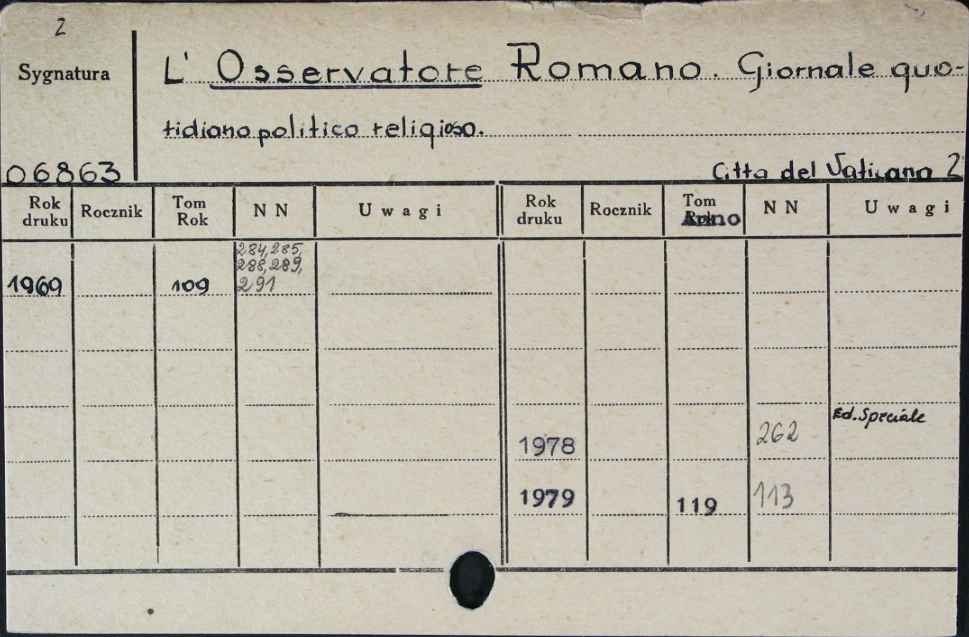 2
Sygnatura
L' Osservatore Romano. Giornale quo-
tidiano politico religioso.
06863
Citta del Vaticano 2
Rok druku Rocznik Tom Rok N N Uwagi Rok druku Rocznik Tom Anno N N Uwagi
284, 285,
288, 289,
1969 109 291
Ed. Speciale
1978 262
1979 119 113